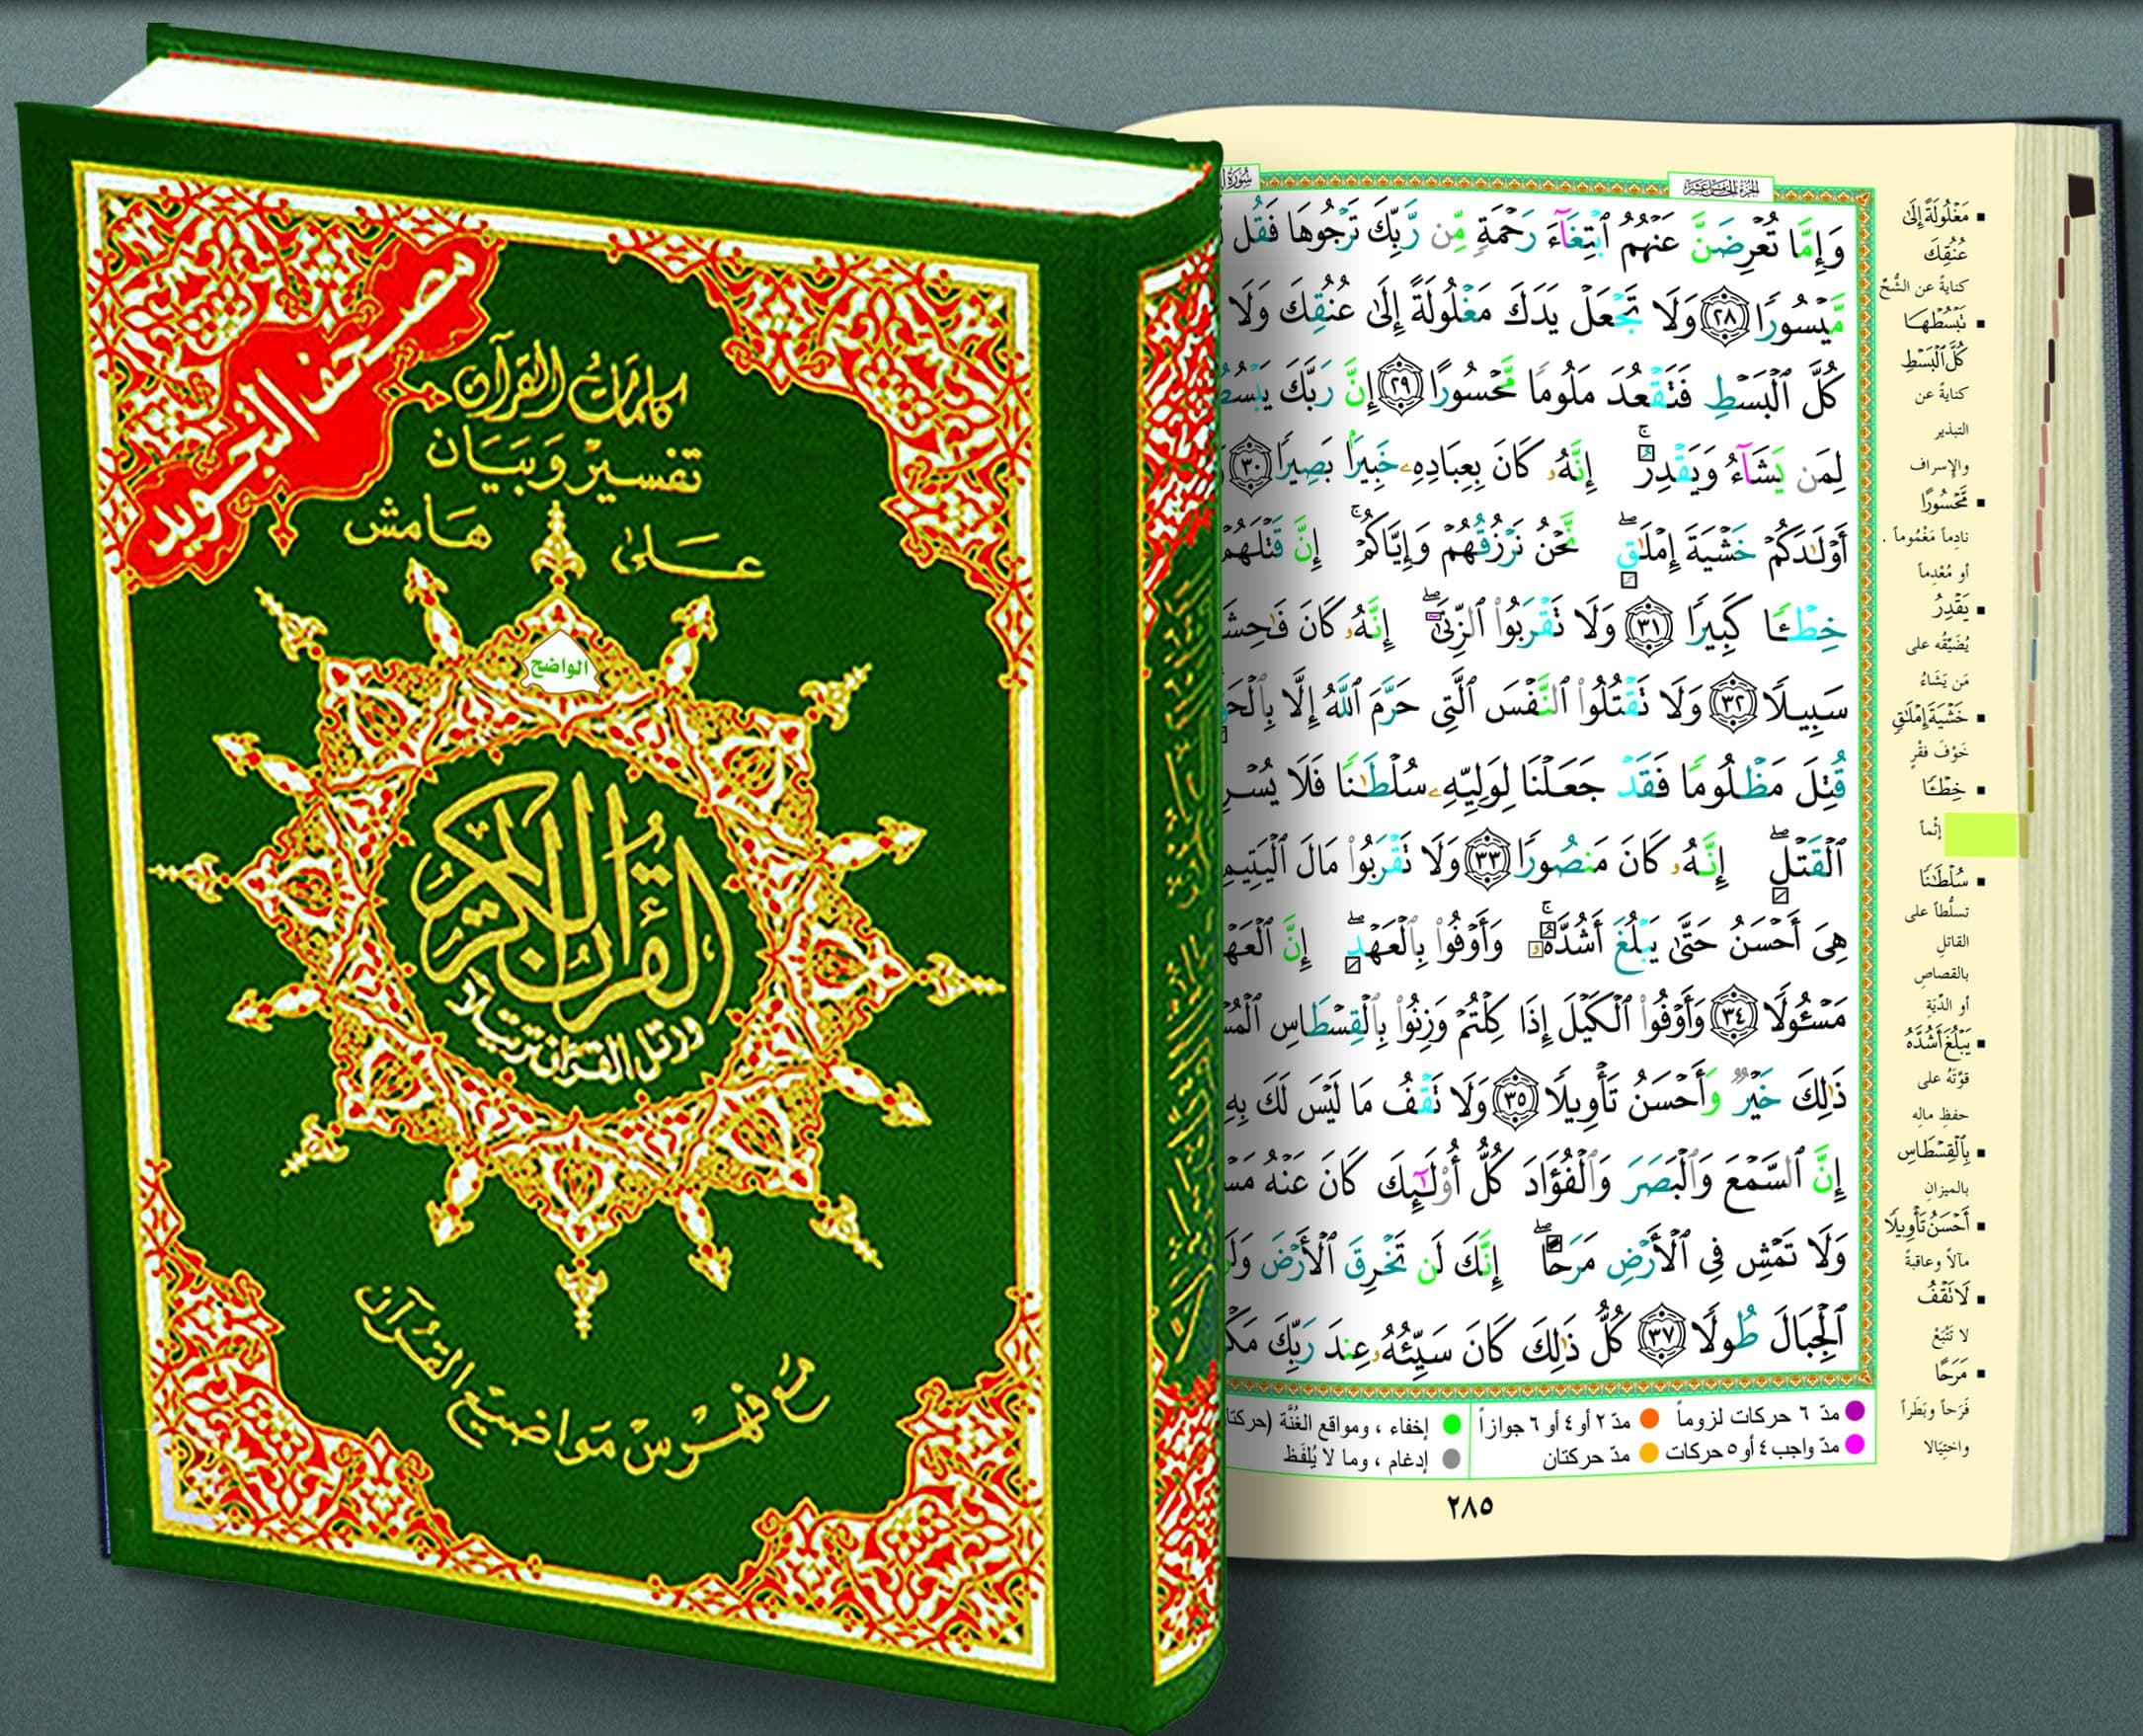 مصحف التجويد
كلمات القرآن
تفسير وبيان
على هامش
الواضح
القرآن الكريم
ورتل القرآن ترتيلا
مع فهرس مواضيع القرآن
سُورَةُ
الجزء الخامس عشر
وَإِمَّا تُعْرِضَنَّ عَنْهُمُ ٱبْتِغَآءَ رَحْمَةٍ مِّن رَّبِّكَ تَرْجُوهَا فَقُل
مَّيْسُورًا ٢٨ وَلَا تَجْعَلْ يَدَكَ مَغْلُولَةً إِلَىٰ عُنُقِكَ وَلَا
كُلَّ ٱلْبَسْطِ فَتَقْعُدَ مَلُومًا مَّحْسُورًا ٢٩ إِنَّ رَبَّكَ
لِمَن يَشَآءُ وَيَقْدِرُ ۚ إِنَّهُۥ كَانَ بِعِبَادِهِۦ خَبِيرًۢا بَصِيرًا ٣٠
أَوْلَٰدَكُمْ خَشْيَةَ إِمْلَٰقٍ ۖ نَّحْنُ نَرْزُقُهُمْ وَإِيَّاكُمْ ۚ إِنَّ قَتْلَهُمْ
خِطْـًٔا كَبِيرًا ٣١ وَلَا تَقْرَبُوا۟ ٱلزِّنَىٰٓ ۖ إِنَّهُۥ كَانَ
سَبِيلًا ٣٢ وَلَا تَقْتُلُوا۟ ٱلنَّفْسَ ٱلَّتِى حَرَّمَ ٱللَّهُ إِلَّا
قُتِلَ مَظْلُومًا فَقَدْ جَعَلْنَا لِوَلِيِّهِۦ سُلْطَٰنًا فَلَا
ٱلْقَتْلِ ۖ إِنَّهُۥ كَانَ مَنصُورًا ٣٣ وَلَا تَقْرَبُوا۟ مَالَ ٱلْيَتِيمِ
هِىَ أَحْسَنُ حَتَّىٰ يَبْلُغَ أَشُدَّهُۥ ۚ وَأَوْفُوا۟ بِٱلْعَهْدِ ۖ إِنَّ
مَسْـُٔولًا ٣٤ وَأَوْفُوا۟ ٱلْكَيْلَ إِذَا كِلْتُمْ وَزِنُوا۟ بِٱلْقِسْطَاسِ
ذَٰلِكَ خَيْرٌ وَأَحْسَنُ تَأْوِيلًا ٣٥ وَلَا تَقْفُ مَا لَيْسَ لَكَ بِهِ
إِنَّ ٱلسَّمْعَ وَٱلْبَصَرَ وَٱلْفُؤَادَ كُلُّ أُو۟لَٰٓئِكَ كَانَ عَنْهُ
وَلَا تَمْشِ فِى ٱلْأَرْضِ مَرَحًا ۖ إِنَّكَ لَن تَخْرِقَ ٱلْأَرْضَ
ٱلْجِبَالَ طُولًا ٣٧ كُلُّ ذَٰلِكَ كَانَ سَيِّئُهُۥ عِندَ رَبِّكَ
مَغْلُولَةً إِلَىٰ
عُنُقِكَ
كناية عن الشُّحِّ
تَبْسُطْهَا
كُلَّ ٱلْبَسْطِ
كناية عن
التبذير
والإسراف
مَّحْسُورًا
نادِماً مَغْمُوماً .
أو مُعْدِماً
يَقْدِرُ
يُضَيِّقُه على
مَن يَشَاءُ
خَشْيَةَ إِمْلَٰقٍ
خَوْفَ فَقْرٍ
خِطْـًٔا
إثْماً
سُلْطَٰنًا
تسلُّطاً على
القاتلِ
بالقصاصِ
أو الدِّيَةِ
يَبْلُغَ أَشُدَّهُ
قوَّتَهُ على
حفظِ مالِه
بِٱلْقِسْطَاسِ
بالميزانِ
أَحْسَنُ تَأْوِيلًا
مآلاً وعاقبةً
لَا تَقْفُ
لا تَتْبَعْ
مَرَحًا
فَرَحاً وبَطَراً
واختِيالا
مدّ ٦ حركات لزوماً مدّ ٢ أو ٤ أو ٦ جوازاً إخفاء ، ومواقع الغُنَّة
مدّ واجب ٤ أو ٥ حركات مدّ حركتان إدغام ، وما لا يُلفَظ
٢٨٥